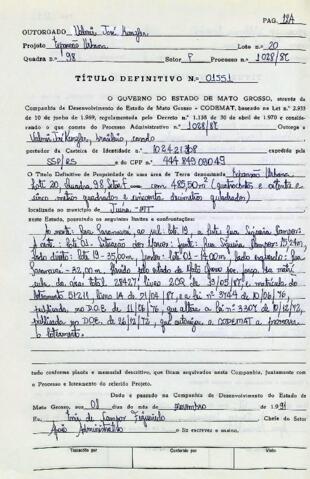 PAG. 12A
OUTORGADO Valmir José Kunzler
Projeto Expansão Urbana Lote n.º 20
Quadra n.º 98 Setor F Processo n.º 1028/87
TÍTULO DEFINITIVO N.º 01551
O GOVERNO DO ESTADO DE MATO GROSSO, através da
Companhia de Desenvolvimento do Estado de Mato Grosso - CODEMAT, baseado na Lei n.º 2.933
de 10 de junho de 1969, regulamentada pelo Decreto n.º 1.138 de 30 de abril de 1970 e considerando
o que consta do Processo Administrativo n.º 1028/87 Outorga a
Valmir José Kunzler, brasileiro, casado
portador da Carteira de Identidade n.º expedida pela
SSP/RS e do CPF n.º 44484909049
O Título Definitivo de Propriedade de uma área de Terra denominada Expansão Urbana
lote 20, Quadra 98 Setor F com 485,50m² (quatrocentos e oitenta e
cinco metros quadrados e cinquenta decímetros quadrados)
localizado no município de Juina - MT
neste Estado, possuindo os seguintes limites e confrontações:
ao norte: Rua ao sul: lote 19, a leste: Rua Siqueira Campos;
a oeste: lote 01. frente: Rua Siqueira Campos
lado direito: lote 19 - 35,00m, fundos: lote 01 - 14,00m, lado esquerdo: Rua
- 32,00m. Havido pelo estado de Mato Grosso por força da matrí
cula da área total 28427, livro 2 de 19/05/87, e matrícula do
loteamento 51211 21/04/87, e a lei nº 3744 de 10/06/76,
publicada no D.O.E de 11/06/76, que altera a lei nº 3307 de 10/12/72,
publicada no D.O.E. de 26/12/72, que autoriza a CODEMAT a promover
o loteamento.
tudo conforme planta e memorial descritivo, que ficam arquivados nesta Companhia, juntamente com
o Processo e loteamento do referido Projeto.
Dado e passado na Companhia de Desenvolvimento do Estado de
Mato Grosso, aos 01 dias do mês de de 1991
Eu, de Campos Figueiredo Chefe do Setor
Apoio Administrativo o fiz escrever e assino.
Transcrito por Conferido por Visto